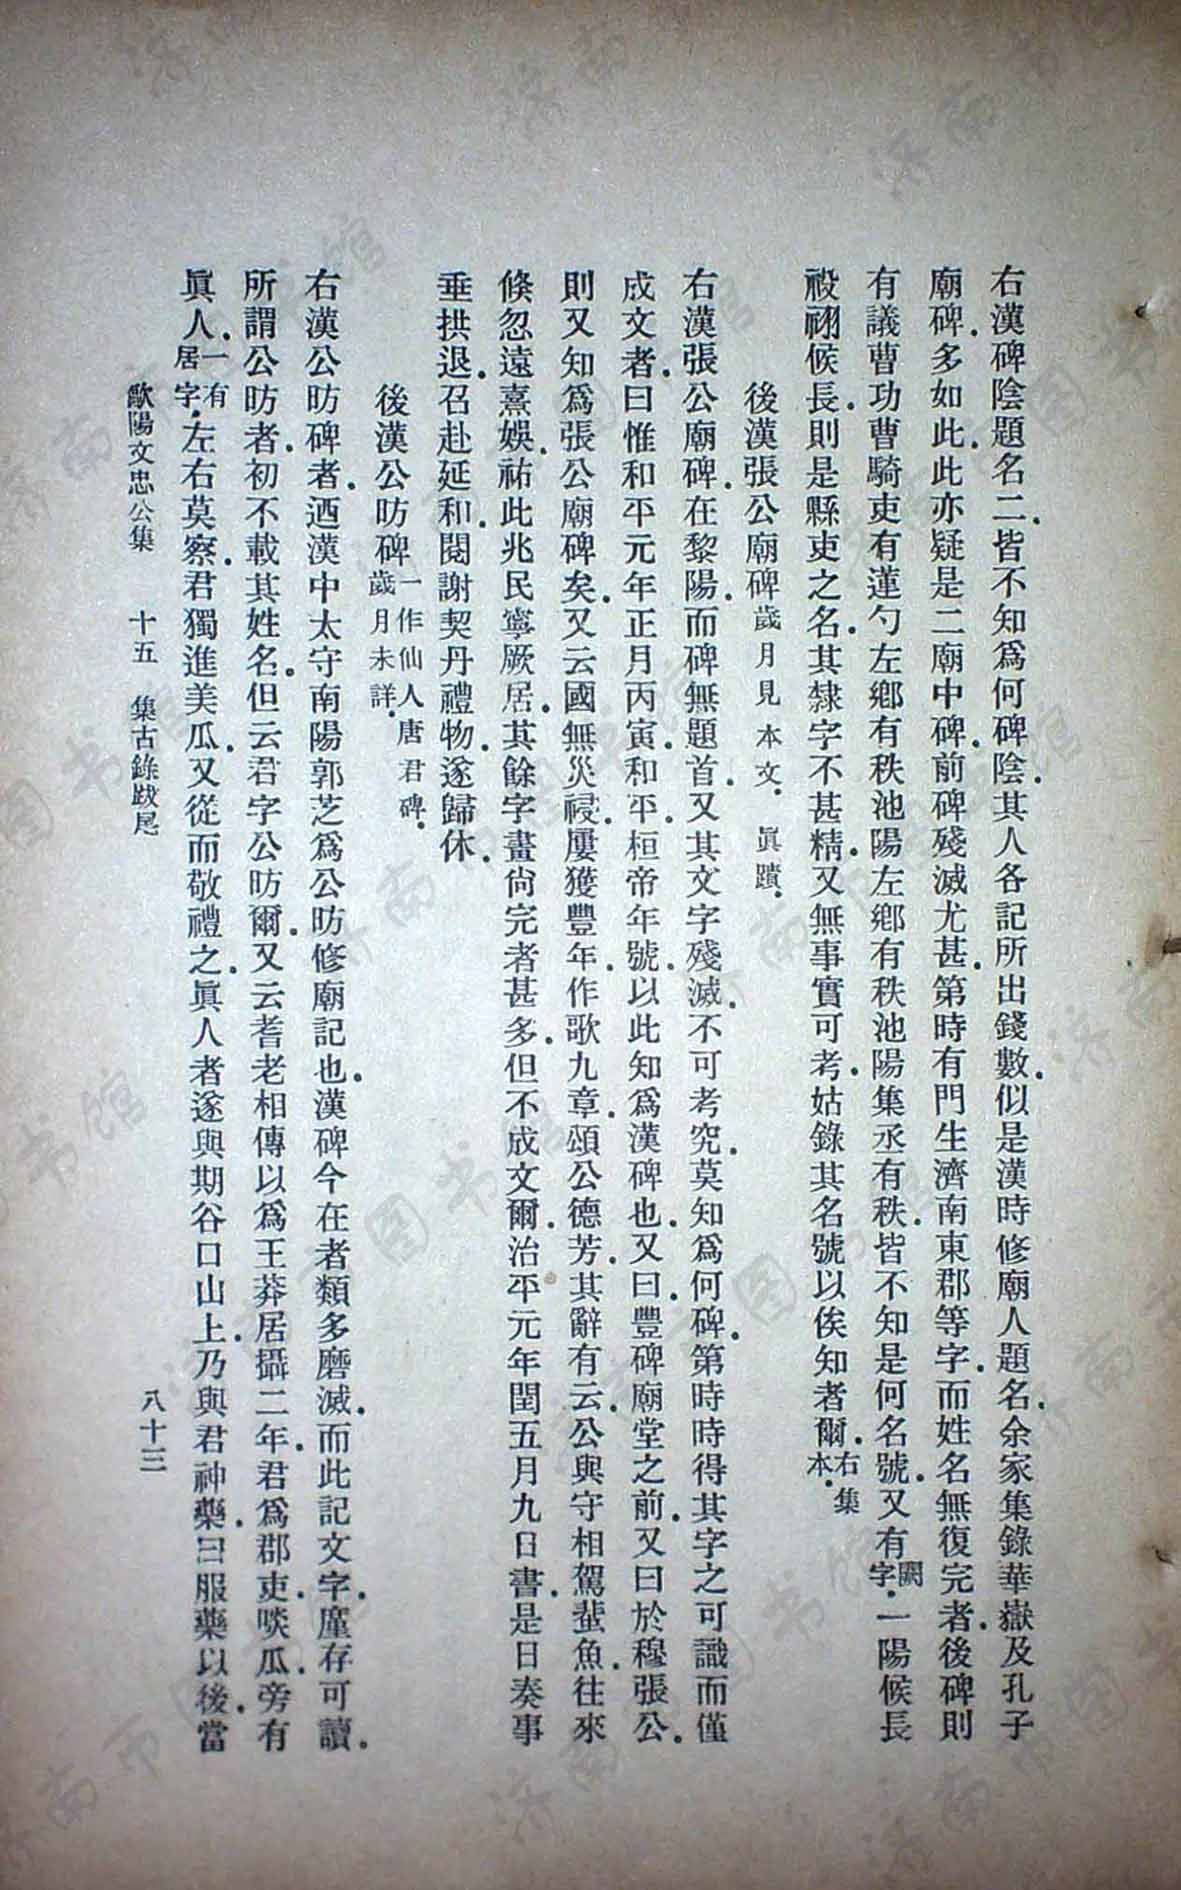 右漢碑陰題名二.皆不知爲何碑陰.其人各記所出錢數.似是漢時修廟人題名.余家集錄華嶽及孔子
廟碑.多如此.此亦疑是二廟中碑.前碑殘滅尤甚.第時有門生濟南東郡等字.而姓名無復完者.後碑則
有議曹功曹騎吏有蓮勺左鄉有秩池陽左鄉有秩池陽集丞有秩.皆不知是何名號.又有闕字.一陽候長
祋祤候長.則是縣吏之名.其隸字不甚精.又無事實可考.姑錄其名號以俟知者爾.右集本.
後漢張公廟碑歲月見本文.眞蹟.
右漢張公廟碑.在黎陽.而碑無題首.又其文字殘滅.不可考究.莫知爲何碑.第時時得其字之可識而僅
成文者.曰惟和平元年正月丙寅.和平.桓帝年號.以此知爲漢碑也.又曰.豐碑廟堂之前.又曰於穆張公.
則又知爲張公廟碑矣.又云國無災祲.屢獲豐年.作歌九章.頌公德芳.其辭有云.公與守相駕蜚魚.往來
倏忽遠熹娛.祐此兆民寧厥居.其餘字畫尙完者甚多.但不成文爾.治平元年閏五月九日書.是日奏事
垂拱退.召赴延和.閱謝契丹禮物.遂歸休.
後漢公昉碑一作仙人唐君碑.歲月未詳.
右漢公昉碑者.迺漢中太守南陽郭芝爲公昉修廟記也.漢碑今在者類多磨滅.而此記文字.廑存可讀.
所謂公昉者.初不載其姓名.但云君字公昉爾.又云耆老相傳以爲王莽居攝二年.君爲郡吏.啖瓜.旁有
眞人.一有居字.左右莫察.君獨進美瓜.又從而敬禮之.眞人者遂與期谷口山上.乃與君神藥.曰服藥以後.當
歐陽文忠公集 十五 集古錄跋尾 八十三
济南市图书馆